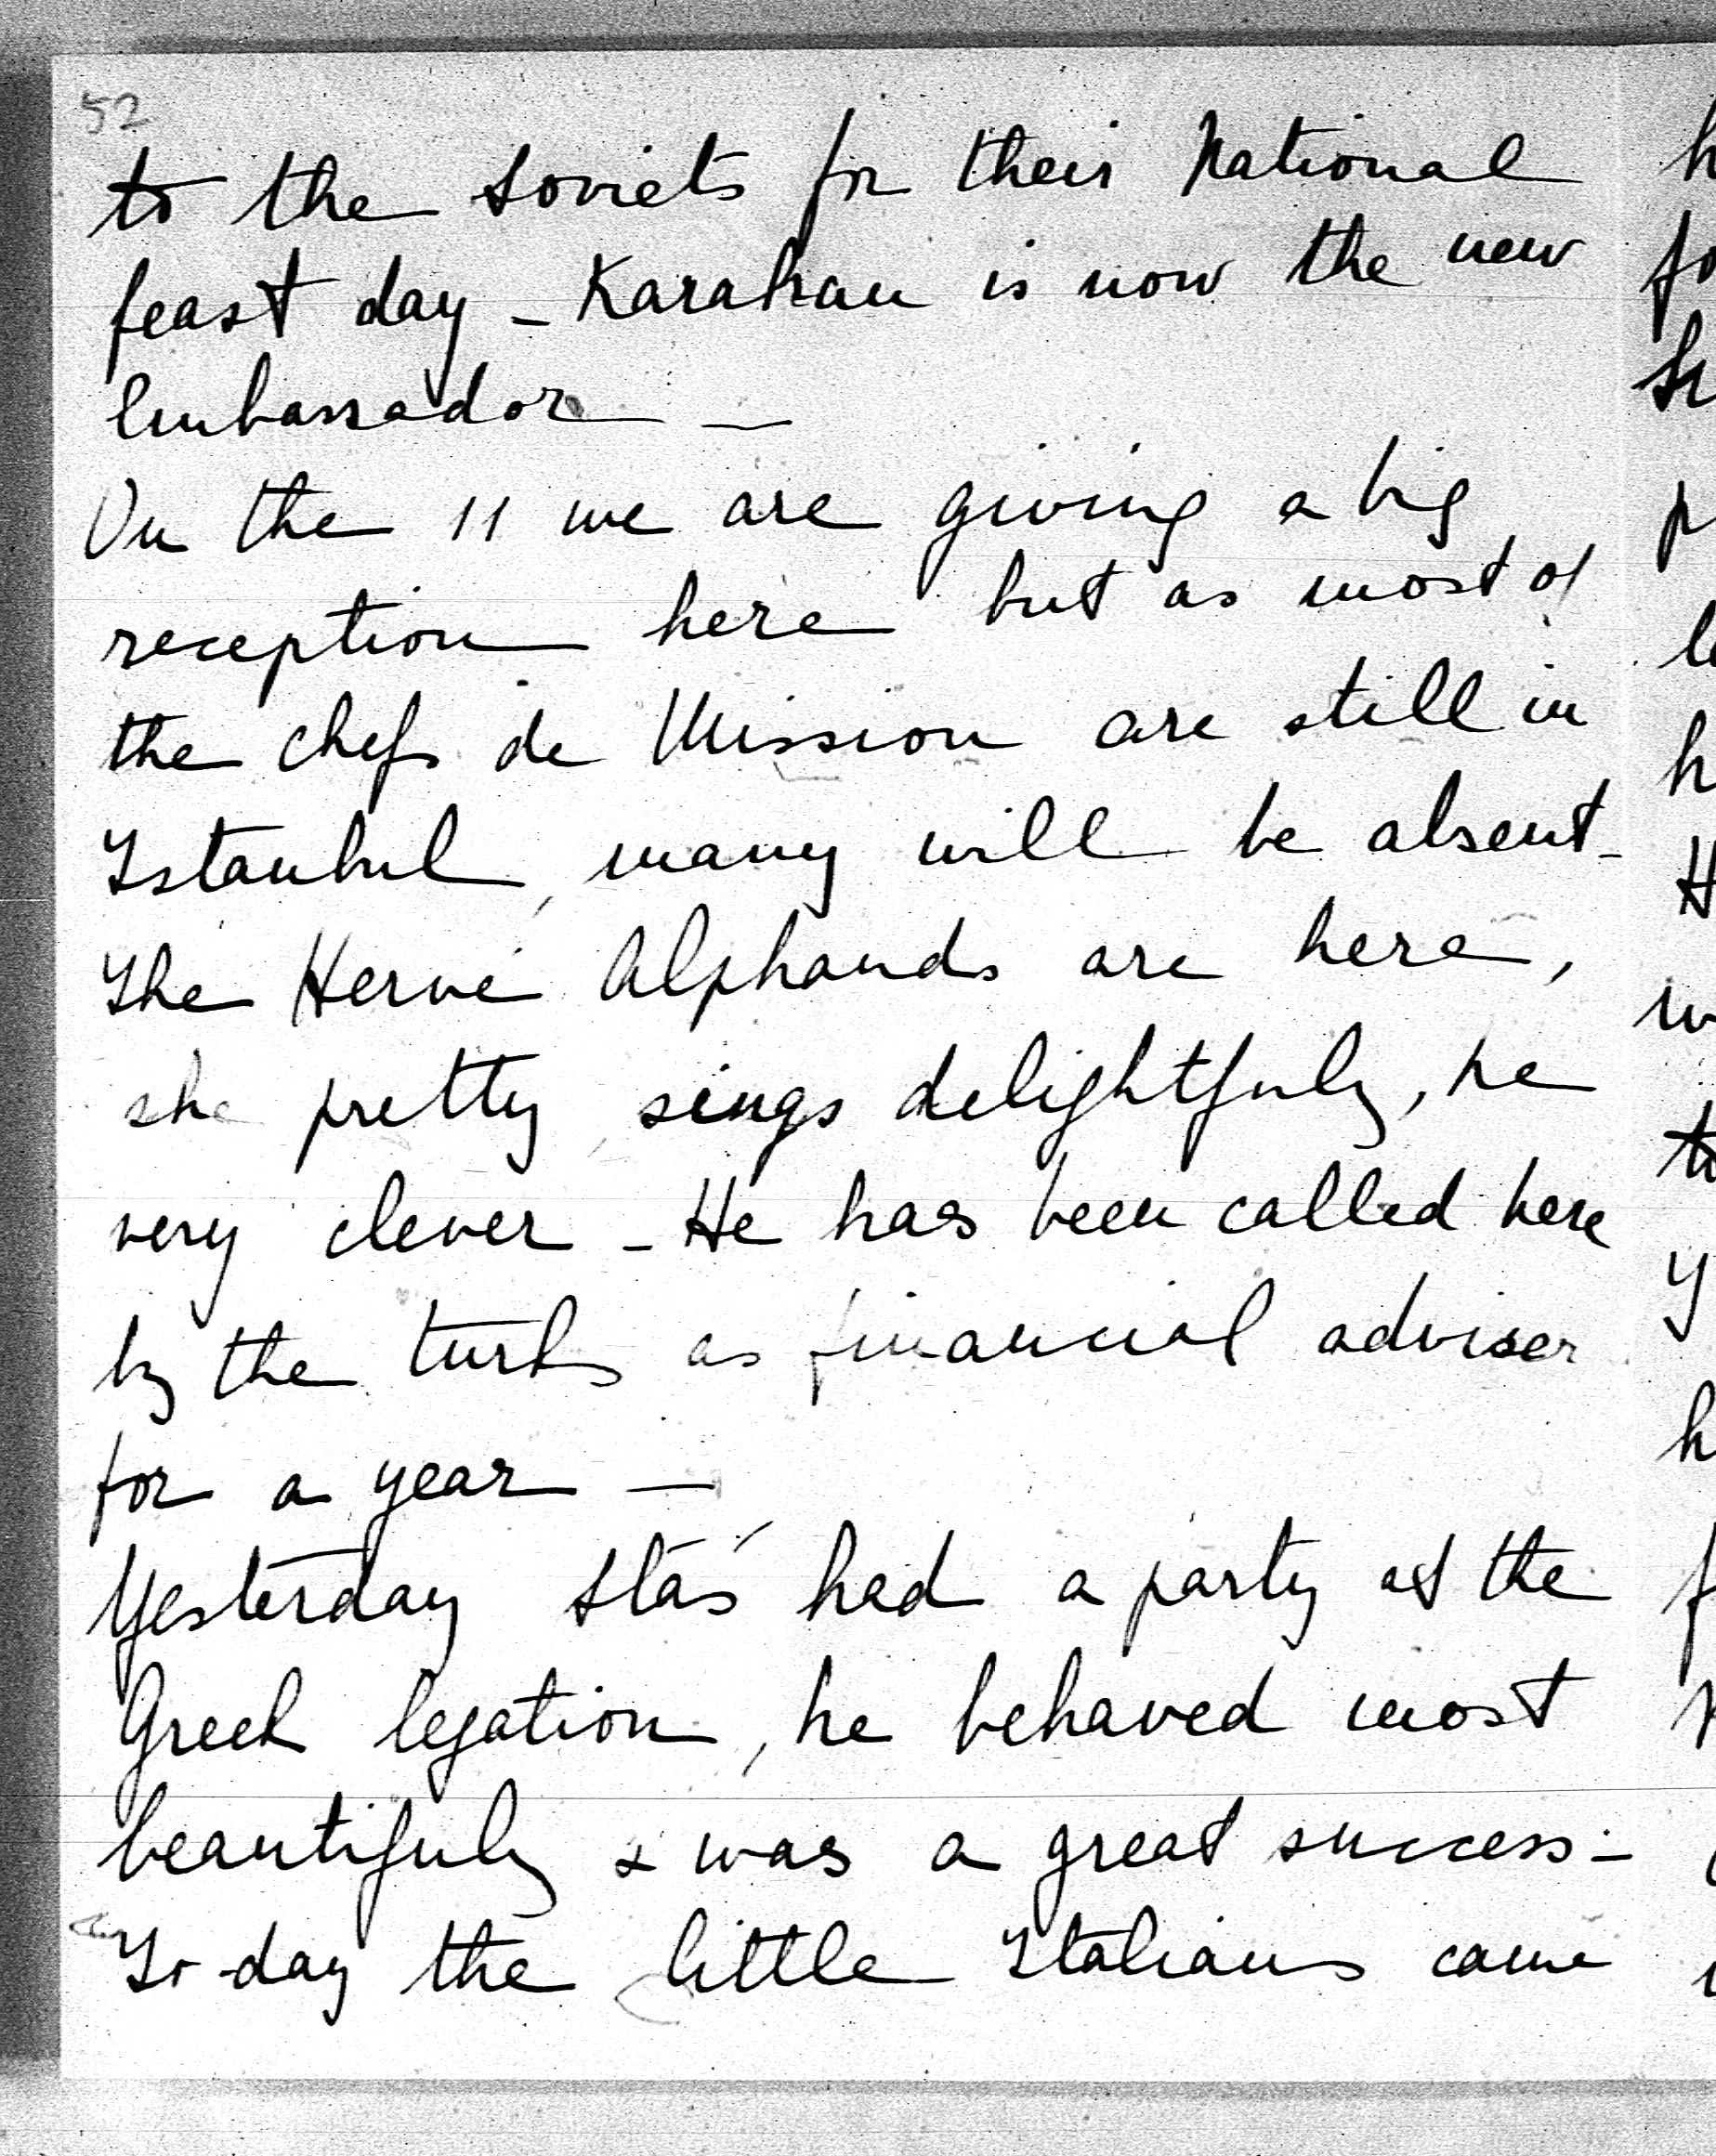 52
to the Soviets for their National
feast day - Karahan is now the new
Embassador —
On the 11 we are giving a big
reception here but as most of
the chefs de Mission are still in
Istanbul, many will be absent -
The Hervé Alphands are here,
she pretty, sings delightfuly, he
very clever - He has been called here
by the turks as financial adviser
for a year —
Yesterday Stas' had a party at the
Greek legation, he behaved most
beautifuly & was a great success -
To-day the little Italians came